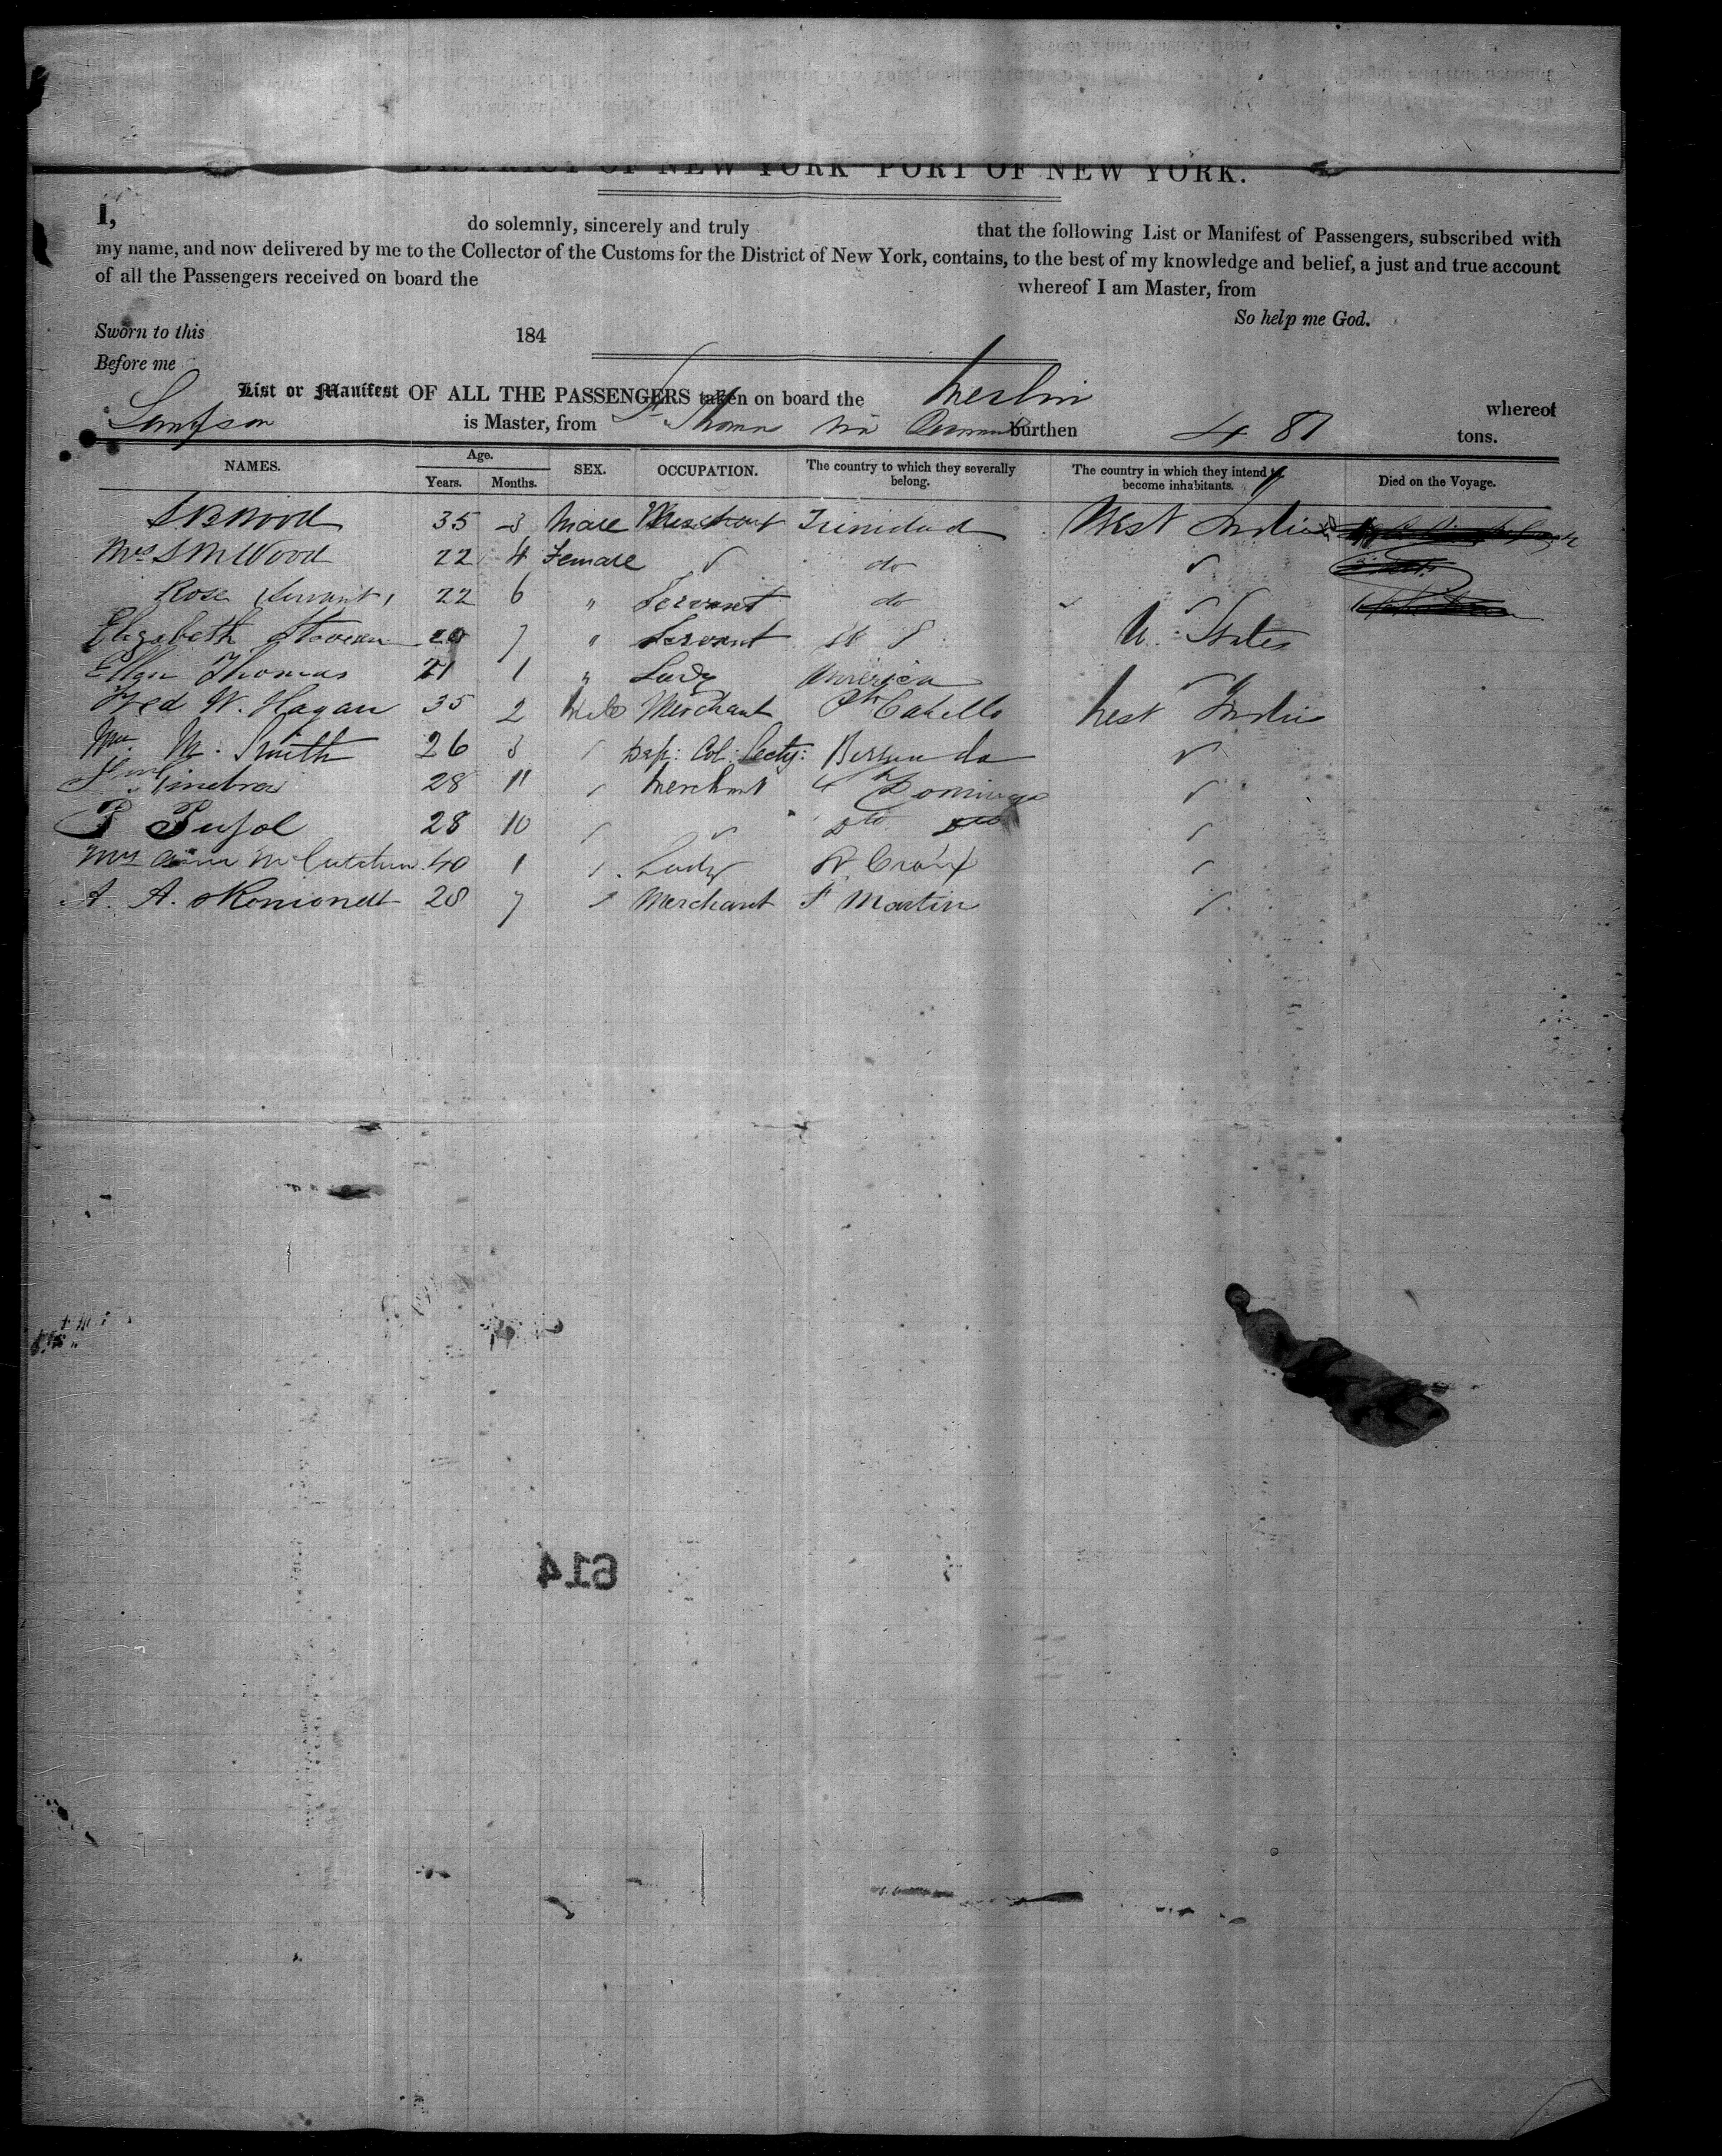 DISTRICT OF NEW YORK PORT OF NEW YORK.
I, do solemnly, sincerely and truly that the following List or Manifest of Passengers, subscribed with
my name, and now delivered by me to the Collector of the Customs for the District of New York, contains, to the best of my knowledge and belief, a just and true account
of all the Passengers received on board the whereof I am Master, from
So help me God.
Sworn to this 184
Before me
List or Manifest OF ALL THE PASSENGERS taken on board the Merlin whereof
Sampson is Master, from St Thomas via burthen 481 tons.
NAMES. Age. SEX. OCCUPATION. The country to which they severally The country in which they intend to Died on the Voyage.
Years. Months. belong. become inhabitants.
S B Wood 35 3 Male Merchant Trinidad West Indies
Mrs S M Wood 22 4 Female ✓ do ✓
Rose (Servant) 22 6 " Servant do ✓
Elizabeth 7 " Servant U. States
Ellen Thomas 21 1 " Lady America ✓
Fred W. Hagan 35 2 Male Merchant Cabello West Indies
M. Smith 26 3 Col: Secty: Bermuda ✓
Ginebra 28 11 Merchant St Domingo ✓
P Pujol 28 10 ✓ Dto Dto ✓
Mrs Ann McCutchen 40 1 Lady St Croix ✓
A. A. 28 7 Merchant St Martin ✓
614